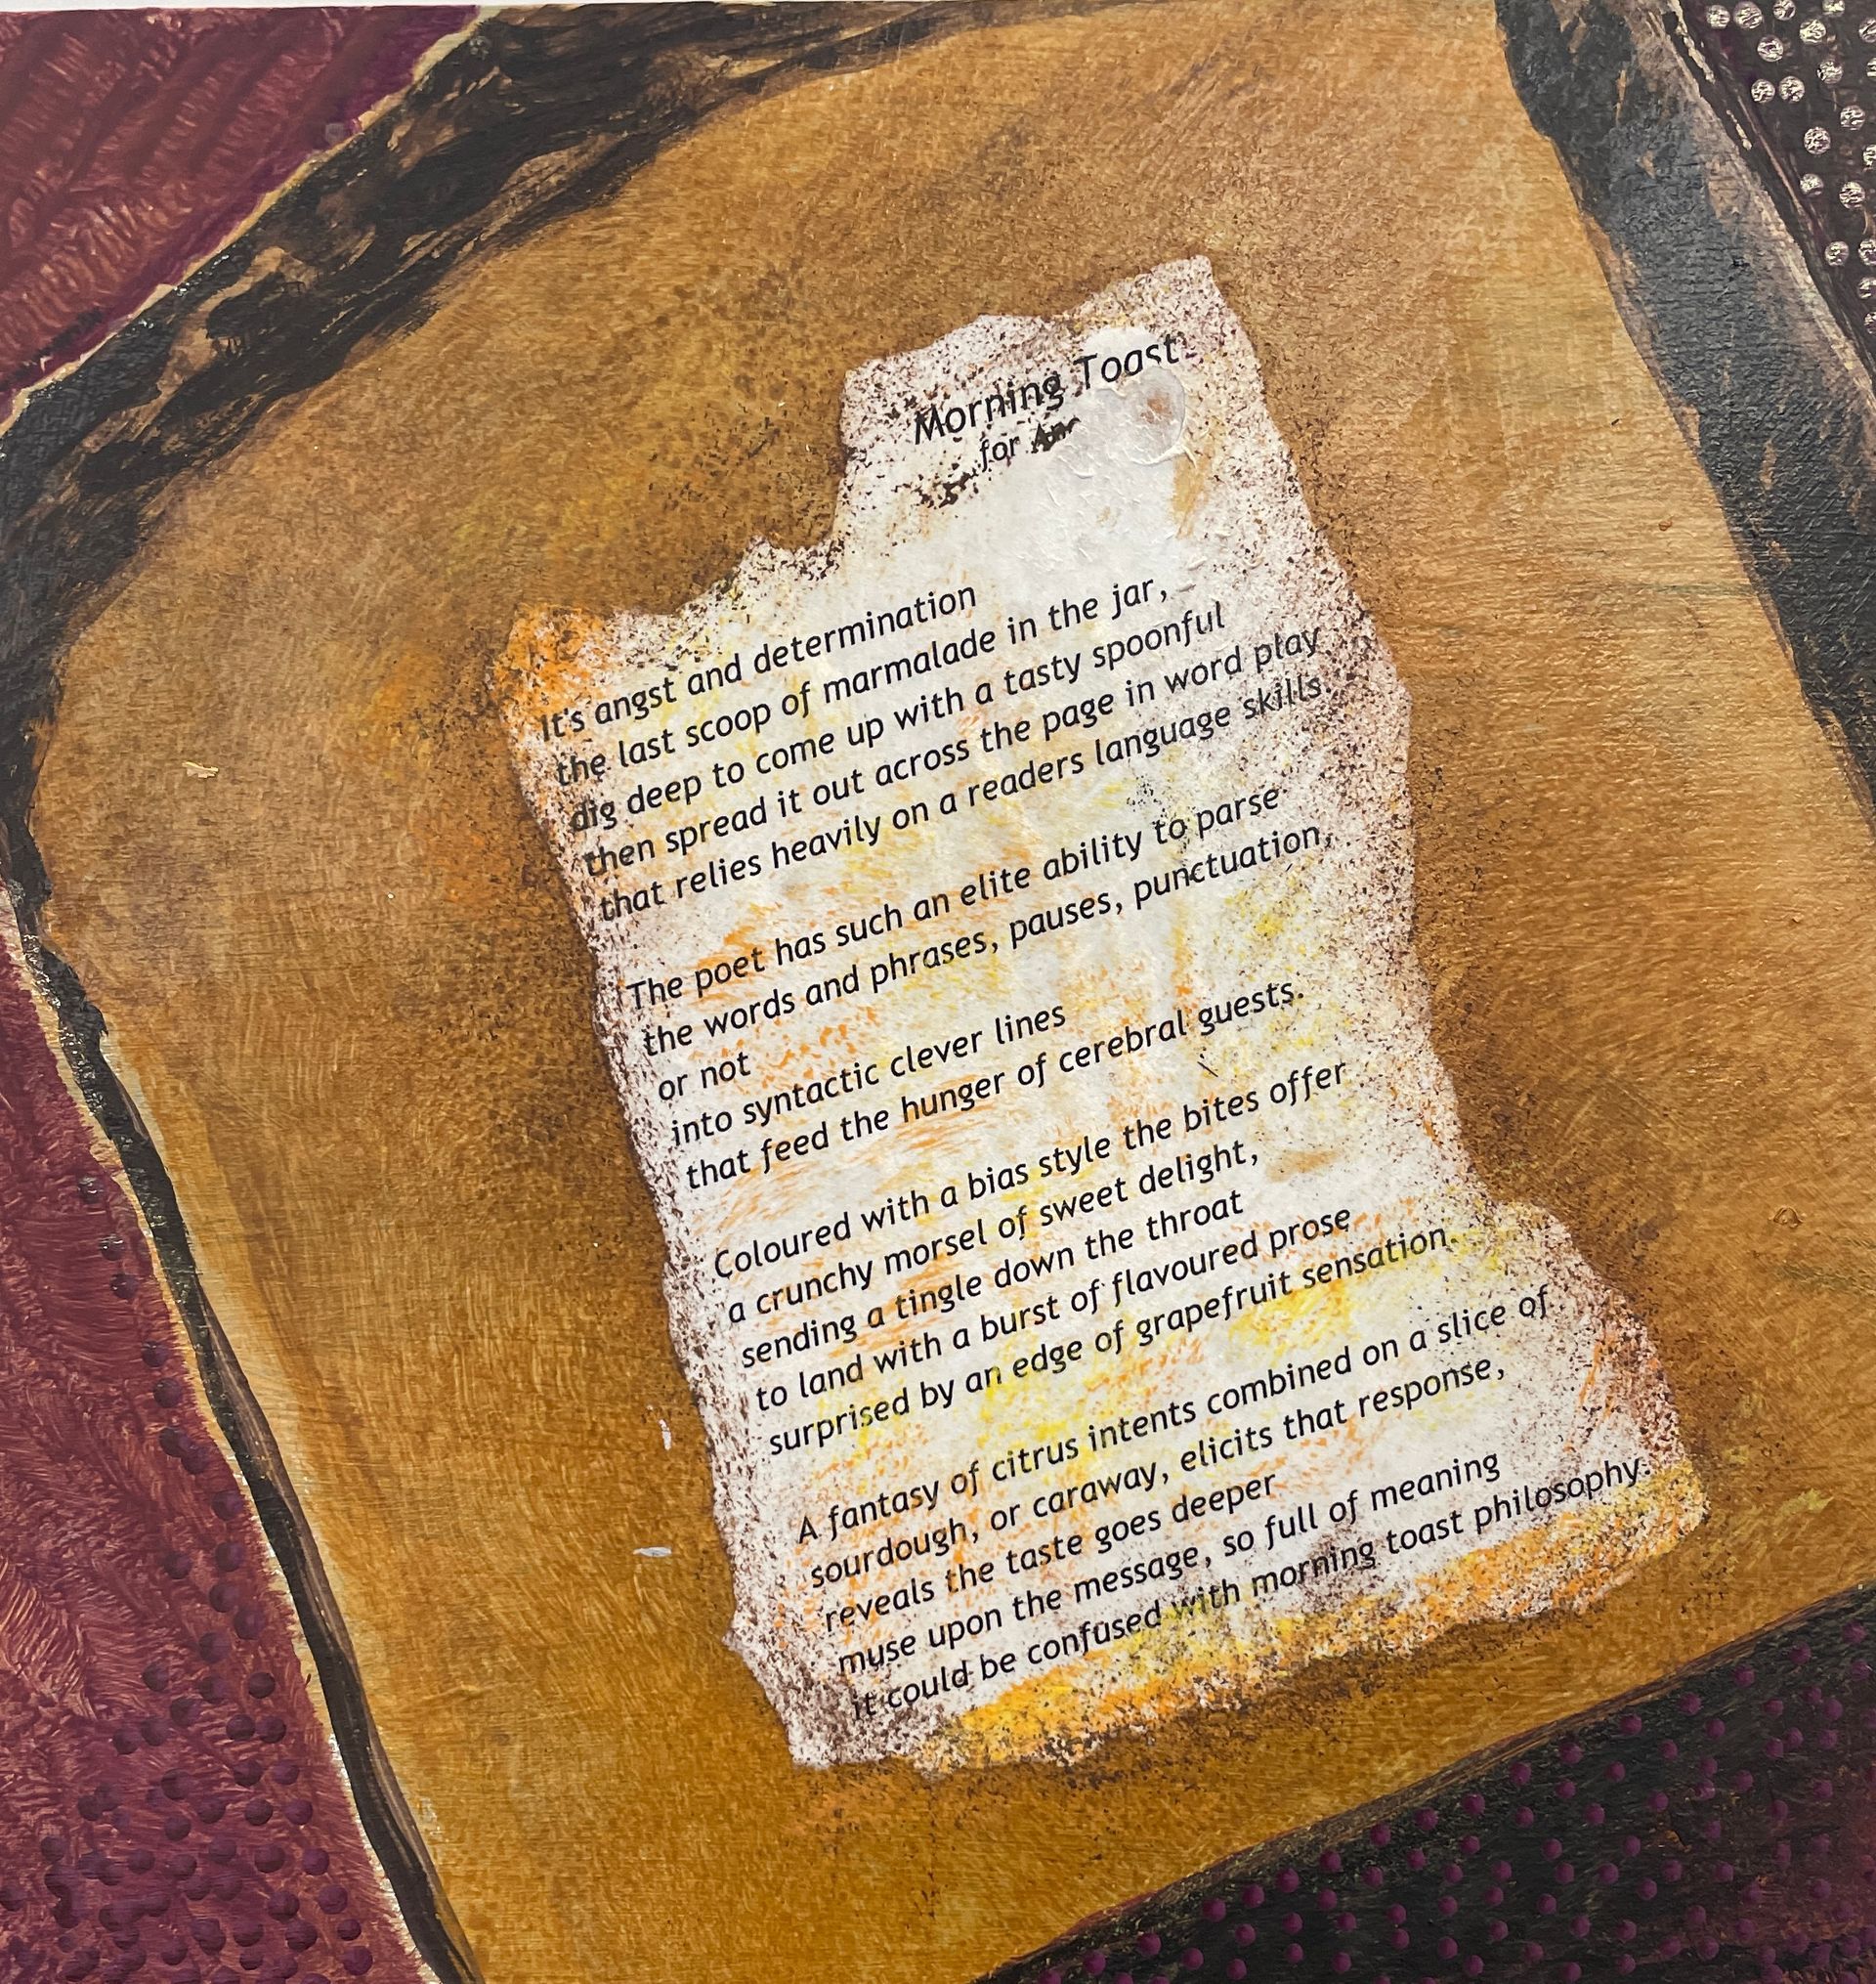 Morning Toast
for
It's angst and determination
the last scoop of marmalade in the jar,
dig deep to come up with a tasty spoonful
then spread it out across the page in word play
that relies heavily on a readers language skills.
The poet has such an elite ability to parse
the words and phrases, pauses, punctuation,
or not
into syntactic clever lines
that feed the hunger of cerebral guests.
Coloured with a bias style the bites offer
a crunchy morsel of sweet delight,
sending a tingle down the throat
to land with a burst of flavoured prose
surprised by an edge of grapefruit sensation.
A fantasy of citrus intents combined on a slice of
sourdough, or caraway, elicits that response,
reveals the taste goes deeper
muse upon the message, so full of meaning
it could be confused with morning toast philosophy.